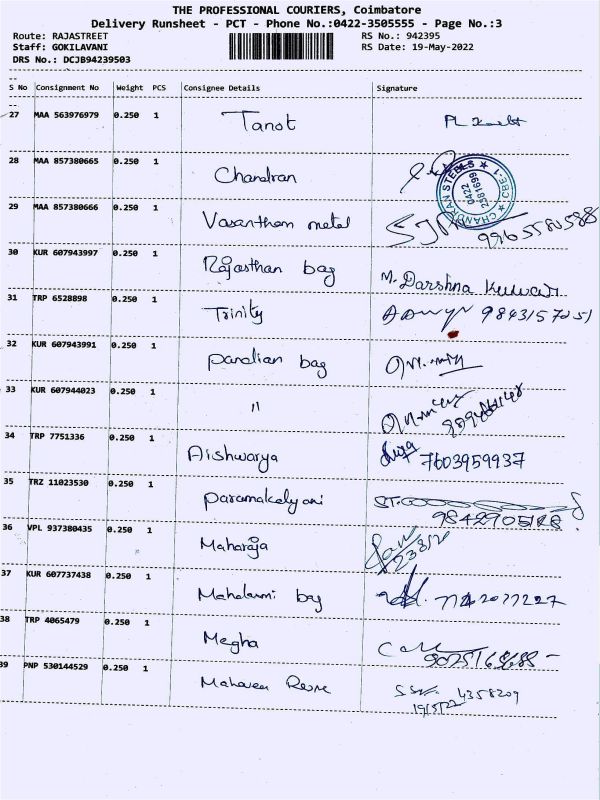 THE PROFESSIONAL COURIERS, Coimbatore
Delivery Runsheet - PCT - Phone No.:0422-3505555 - Page No.:3
Route: RAJASTREET RS No.: 942395
Staff: GOKILAVANI RS Date: 19-May-2022
DRS No.: DCJB94239503
S No Consignment No Weight PCS Consignee Details Signature
27 MAA 563976979 0.250 1 Tanot
28 MAA 857380665 0.250 1 Chandran
CHANDRAN STEELS CBE-1
0422 2381699
29 MAA 857380666 0.250 1 Vasantham metal 9965580588
30 KUR 607943997 0.250 1 Rajasthan bag M. Darshna Kuwar
31 TRP 6528898 0.250 1 Trinity
32 KUR 607943991 0.250 1 pandian bag
33 KUR 607944023 0.250 1 "
34 TRP 7751336 0.250 1 Aishwarya 7603959937
35 TRZ 11023530 0.250 1 paramakalyani
36 VPL 937380435 0.250 1 Maharaja
37 KUR 607737438 0.250 1 Mahalaxmi bag
38 TRP 4065479 0.250 1 Megha
39 PNP 530144529 0.250 1 Mahaveer 4358209
19/5/22